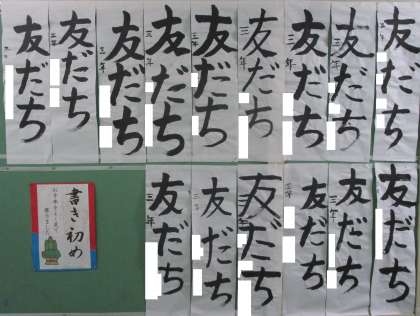 友だち
三年
友だち
三年
友だち
三年
友だち
三年
友だち
三年
友だち
三年
友だち
三年
友だち
三年
友だち
三年
書き初め
友だち
三年
友だち
三年
友だち
三年
友だち
三年
友だち
三年
友だち
三年